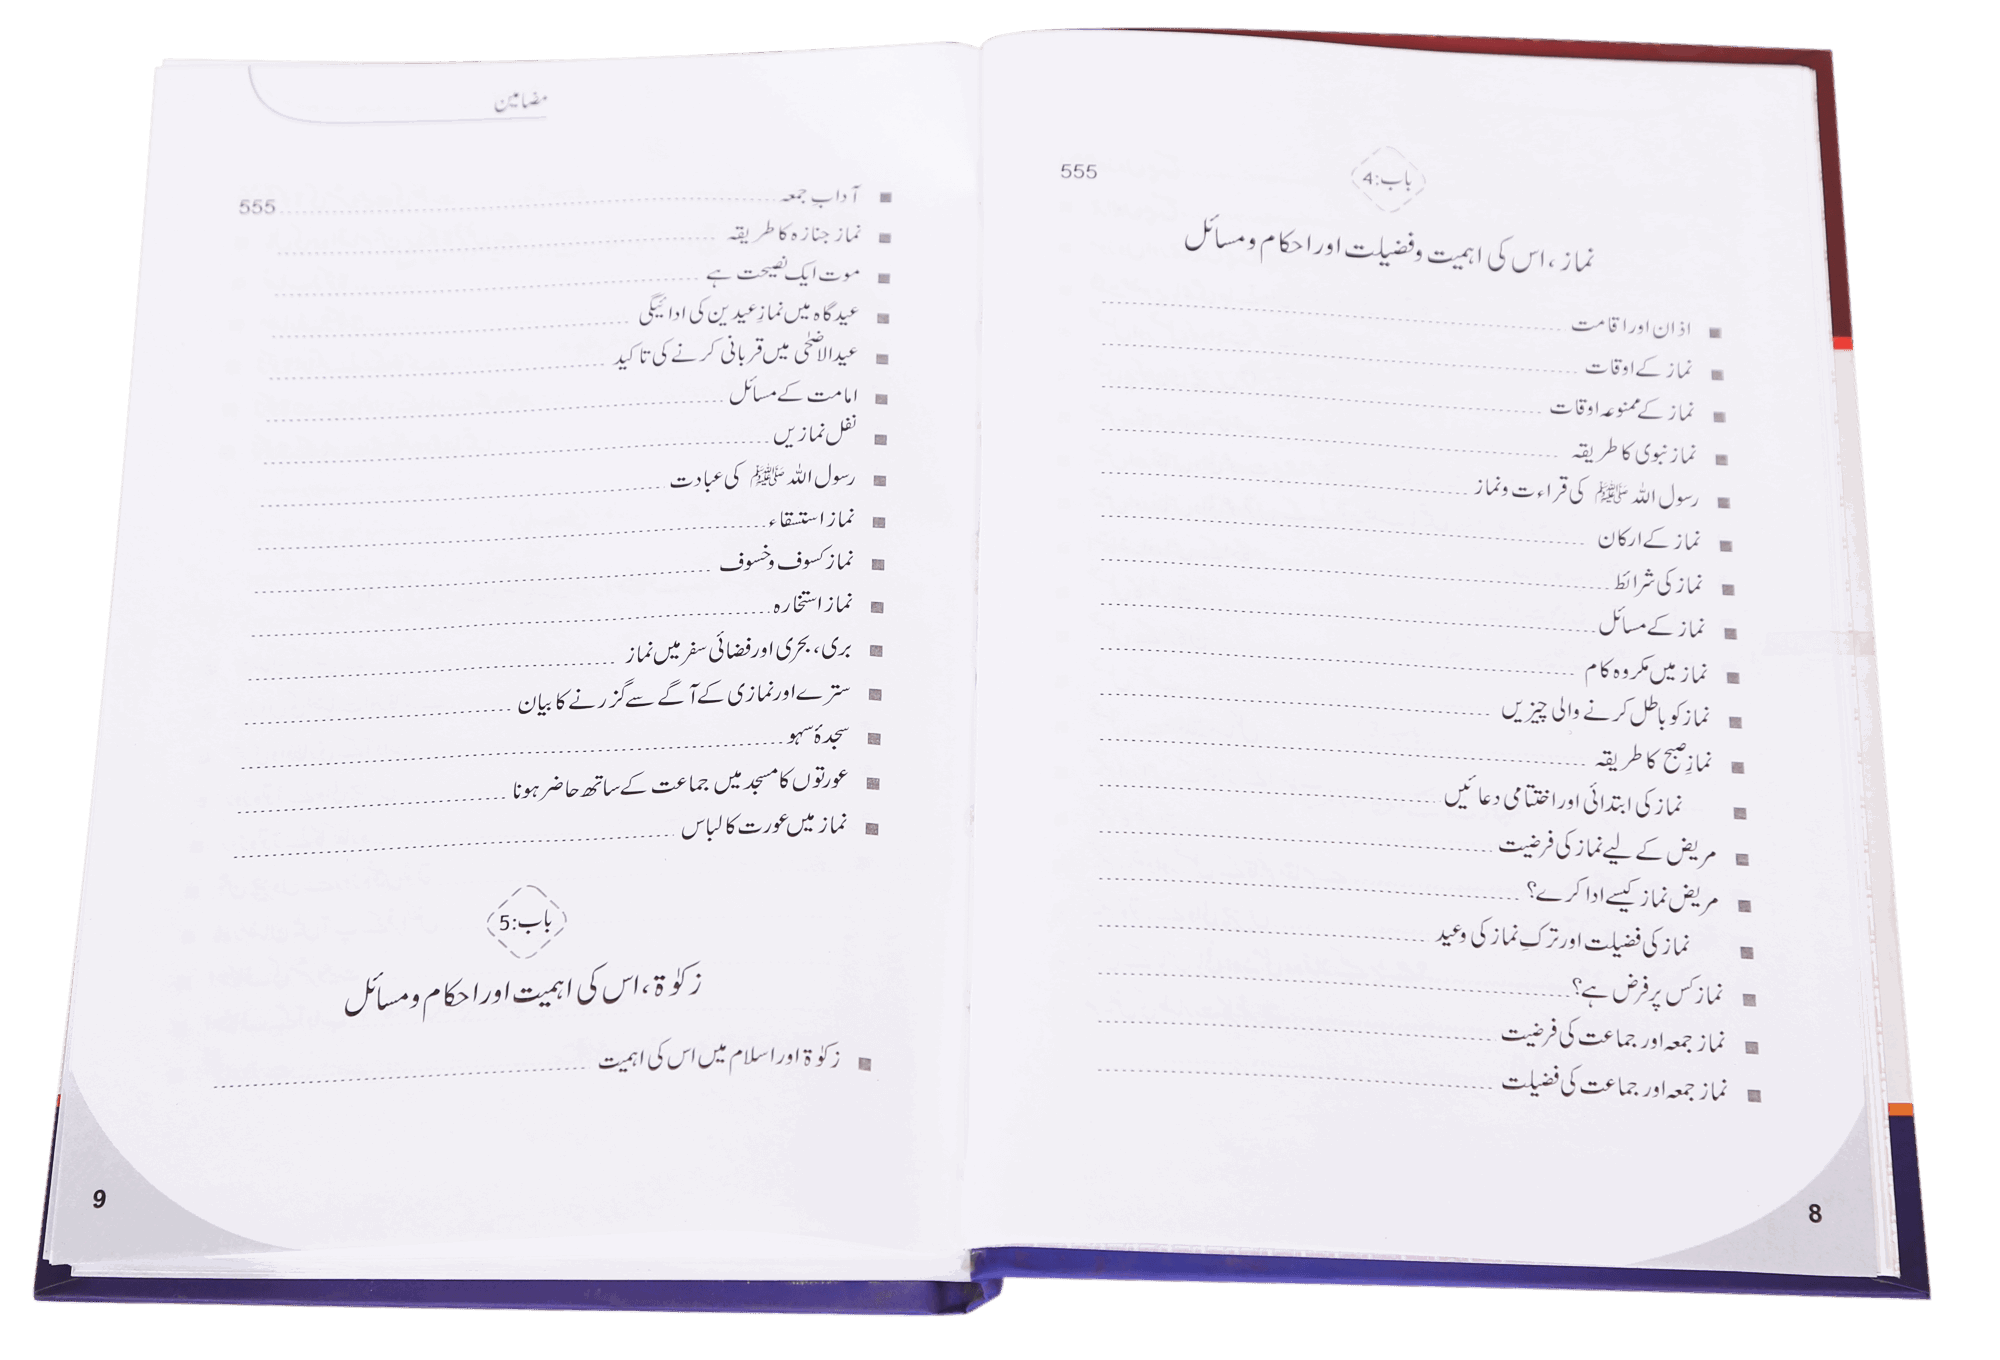 555
باب:4
نماز، اس کی اہمیت وفضیلت اور احکام ومسائل
اذان اور اقامت
نماز کے اوقات
نماز کے ممنوعہ اوقات
نماز نبوی کا طریقہ
رسول اللہ ﷺ کی قراءت ونماز
نماز کے ارکان
نماز کی شرائط
نماز کے مسائل
نماز میں مکروہ کام
نماز کو باطل کرنے والی چیزیں
نمازِ صبح کا طریقہ
نماز کی ابتدائی اور اختتامی دعائیں
مریض کے لیے نماز کی فرضیت
مریض نماز کیسے ادا کرے؟
نماز کی فضیلت اور ترکِ نماز کی وعید
نماز کس پر فرض ہے؟
نماز جمعہ اور جماعت کی فرضیت
نماز جمعہ اور جماعت کی فضیلت
8
مضامین
آدابِ جمعہ 555
نماز جنازہ کا طریقہ
موت ایک نصیحت ہے
عیدگاہ میں نمازِ عیدین کی ادائیگی
عیدالاضحٰی میں قربانی کرنے کی تاکید
امامت کے مسائل
نفل نمازیں
رسول اللہ ﷺ کی عبادت
نماز استسقاء
نماز کسوف وخسوف
نماز استخارہ
بری، بحری اور فضائی سفر میں نماز
سترے اور نمازی کے آگے سے گزرنے کا بیان
سجدۂ سہو
عورتوں کا مسجد میں جماعت کے ساتھ حاضر ہونا
نماز میں عورت کا لباس
باب:5
زکوٰۃ، اس کی اہمیت اور احکام ومسائل
زکوٰۃ اور اسلام میں اس کی اہمیت
9